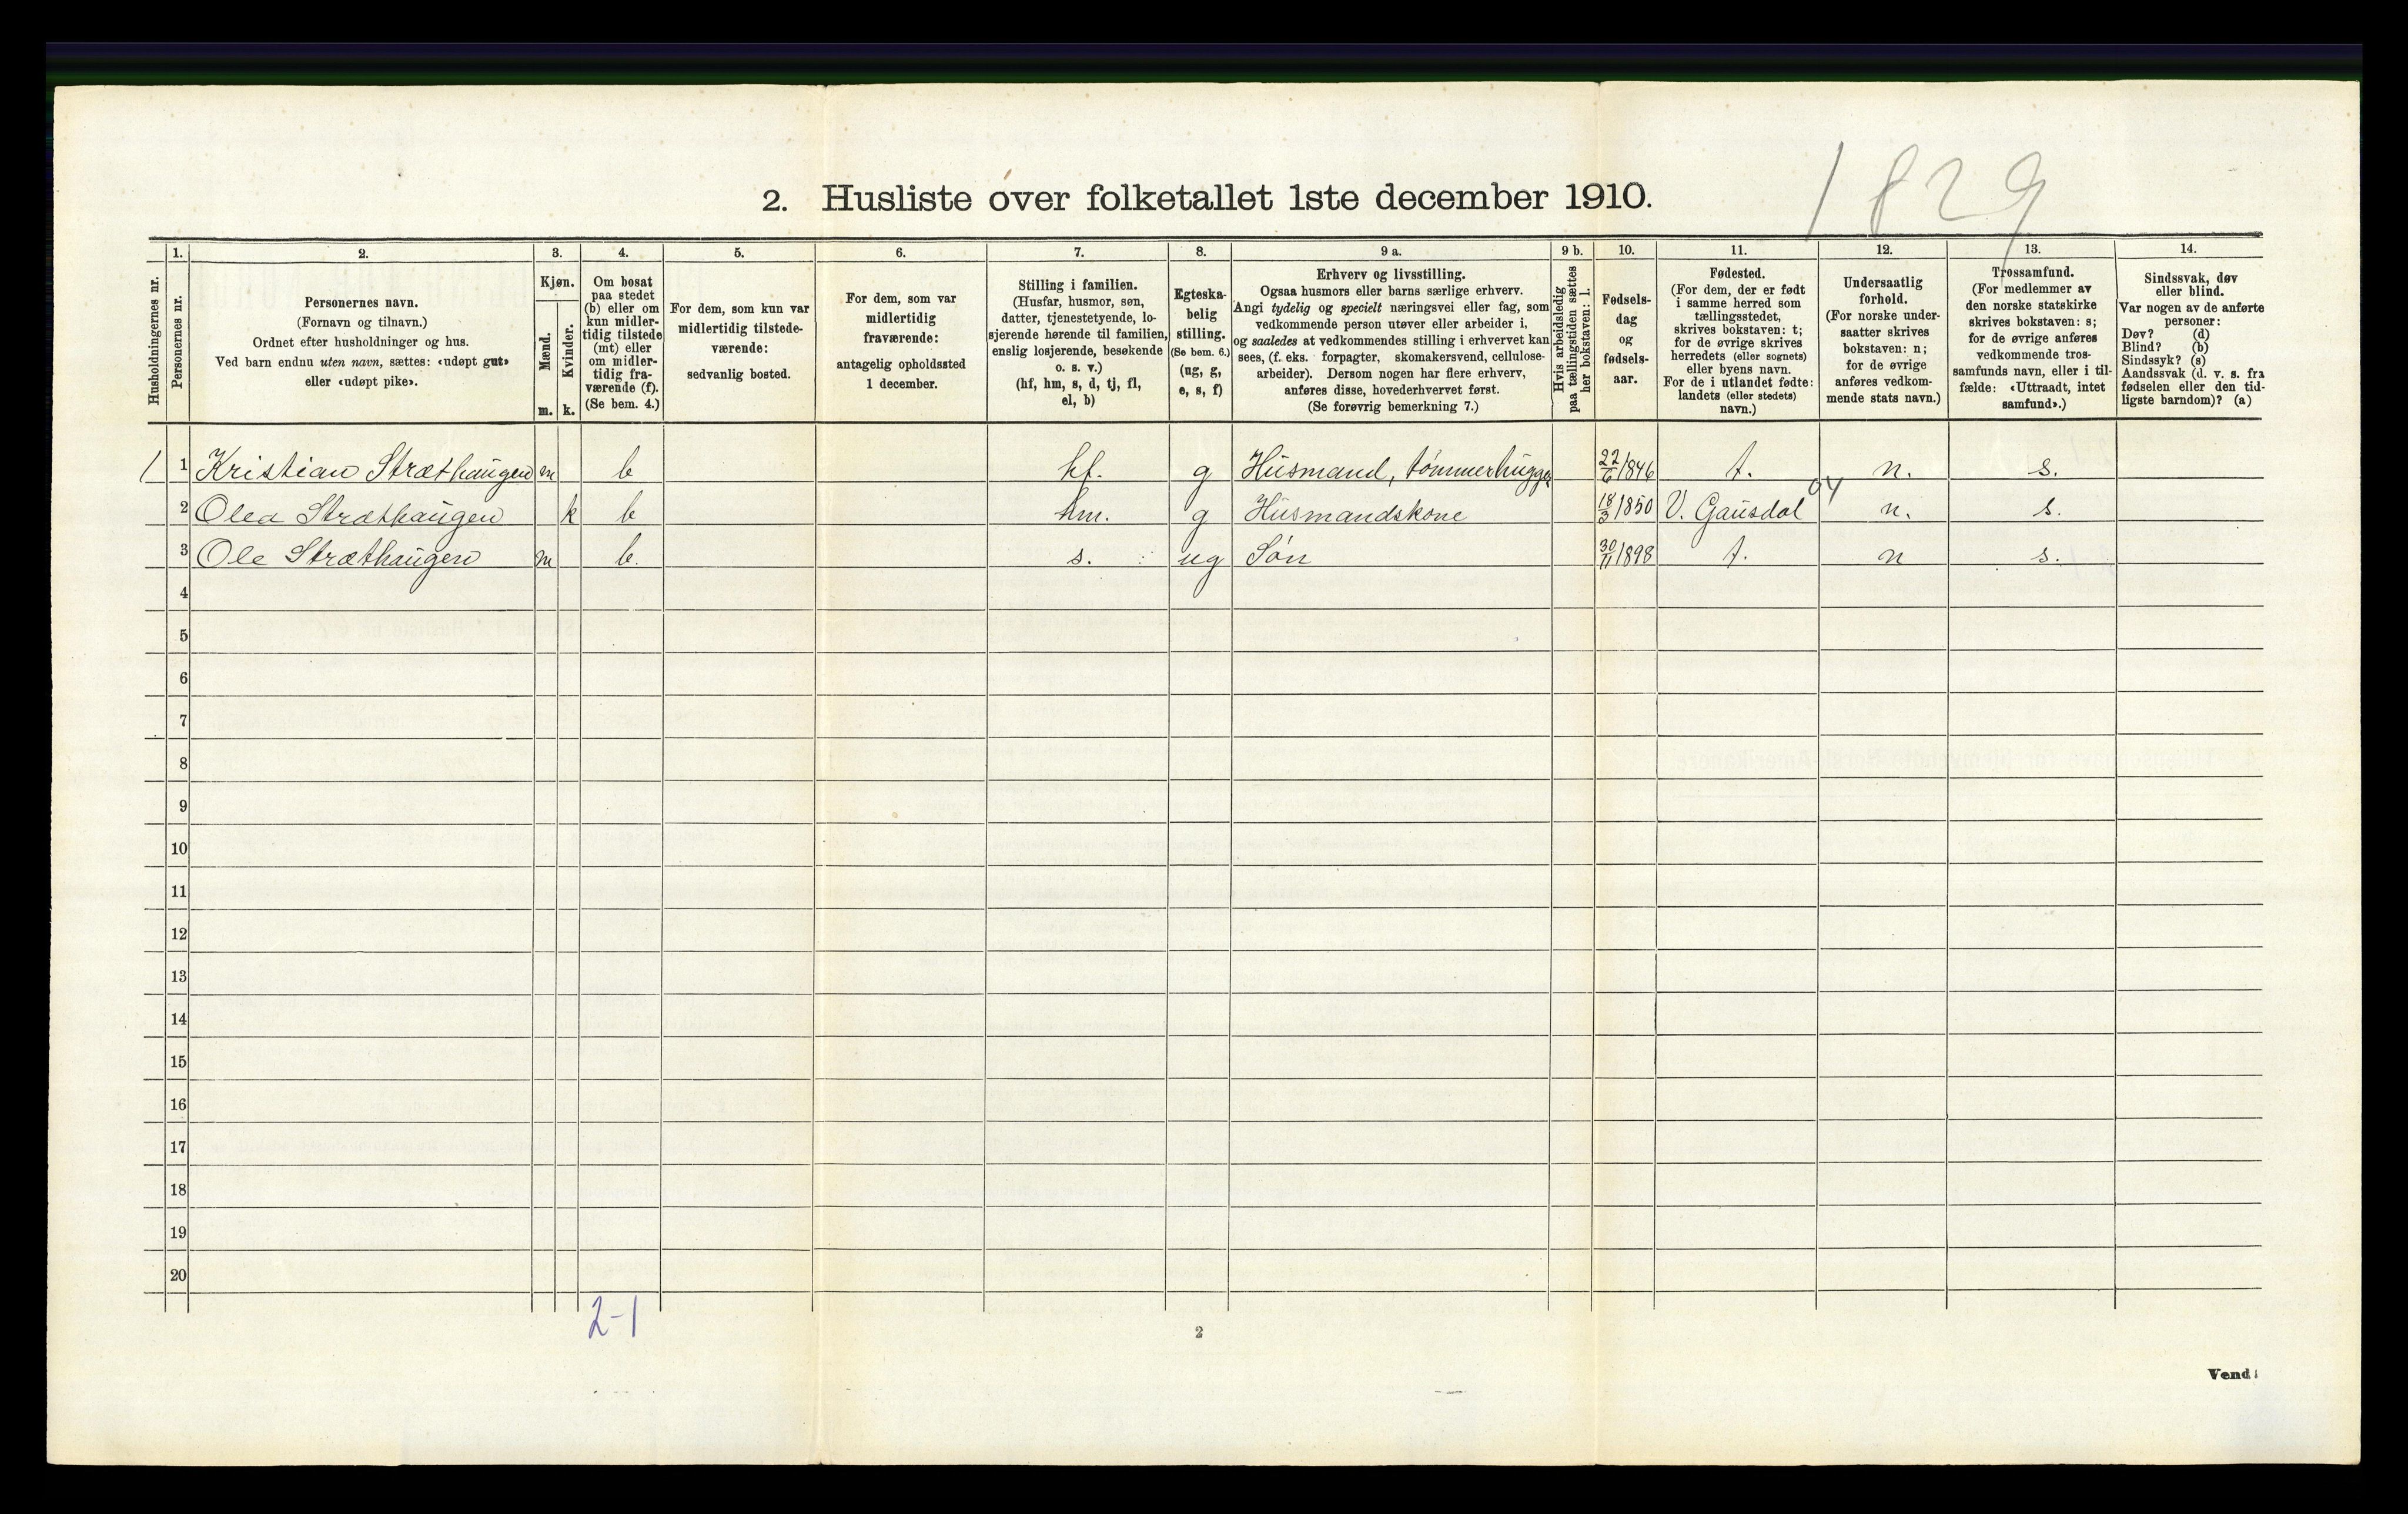 1829
2. Husliste over folketallet 1ste december 1910.
Husholdningernes nr.
1.
Personernes nr.
2.
Personernes navn.
(Fornavn og tilnavn.)
Ordnet efter husholdninger og hus.
Ved barn endnu uten navn, sættes: «udøpt gut»
eller «udøpt pike».
3.
Kjøn.
Mænd.
Kvinder.
m. k.
4.
Om bosat
paa stedet
(b) eller om
kun midler-
tidig tilstede
(mt) eller
om midler-
tidig fra-
værende (f).
(Se bem. 4.)
5.
For dem, som kun var
midlertidig tilstede-
værende:
sedvanlig bosted.
6.
For dem, som var
midlertidig
fraværende:
antagelig opholdssted
1 december.
7.
Stilling i familien.
(Husfar, husmor, søn,
datter, tjenestetyende, lo-
sjerende hørende til familien,
enslig losjerende, besøkende
o. s. v.)
(hf, hm, s, d, tj, fl,
el, b)
8.
Egteska-
belig
stilling.
(Se bem. 6.)
(ug, g,
e, s, f)
9 a.
Erhverv og livsstilling.
Ogsaa husmors eller barns særlige erhverv.
Angi tydelig og specielt næringsvei eller fag, som
vedkommende person utøver eller arbeider i,
og saaledes at vedkommendes stilling i erhvervet kan
sees, (f. eks. forpagter, skomakersvend, cellulose-
arbeider). Dersom nogen har flere erhverv,
anføres disse, hovederhvervet først.
(Se forøvrig bemerkning 7.)
9 b.
Hvis arbeidsledig
paa tællingstiden sættes
her bokstaven: l.
10.
Fødsels-
dag
og
fødsels-
aar.
11.
Fødested.
(For dem, der er født
i samme herred som
tællingsstedet,
skrives bokstaven: t;
for de øvrige skrives
herredets (eller sognets)
eller byens navn.
For de i utlandet fødte:
landets (eller stedets)
navn.)
12.
Undersaatlig
forhold.
(For norske under-
saatter skrives
bokstaven: n;
for de øvrige
anføres vedkom-
mende stats navn.)
13.
Trossamfund.
(For medlemmer av
den norske statskirke
skrives bokstaven: s;
for de øvrige anføres
vedkommende tros-
samfunds navn, eller i til-
fælde: «Uttraadt, intet
samfund».)
14.
Sindssvak, døv
eller blind.
Var nogen av de anførte
personer:
Døv? (d)
Blind? (b)
Sindssyk? (s)
Aandssvak (d. v. s. fra
fødselen eller den tid-
ligste barndom)? (a)
1 1 Kristian Stræthaugen m b hf. g Husmand, tømmerhugger 22/6 1846 t. n. s.
04
2 Olea Stræthaugen k b hm. g Husmandskone 18/3 1850 V. Gausdal n. s.
3 Ole Stræthaugen m b. s. ug Søn 30/11 1898 t. n s.
4
5
6
7
8
9
10
11
12
13
14
15
16
17
18
19
20
2-1
2
Vend!